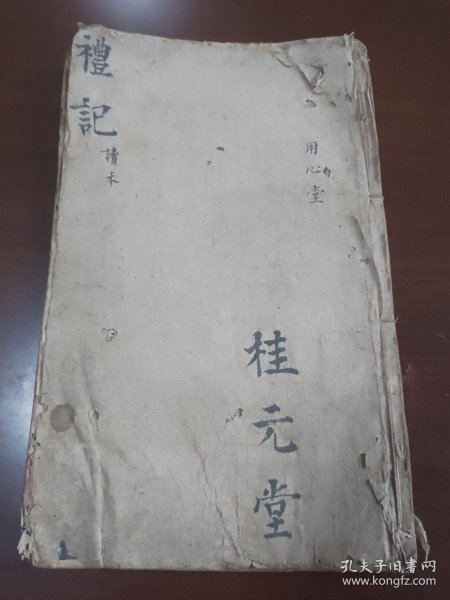 用心堂
桂元堂
禮記
讀本
孔夫子旧书网
www.kongfz.com